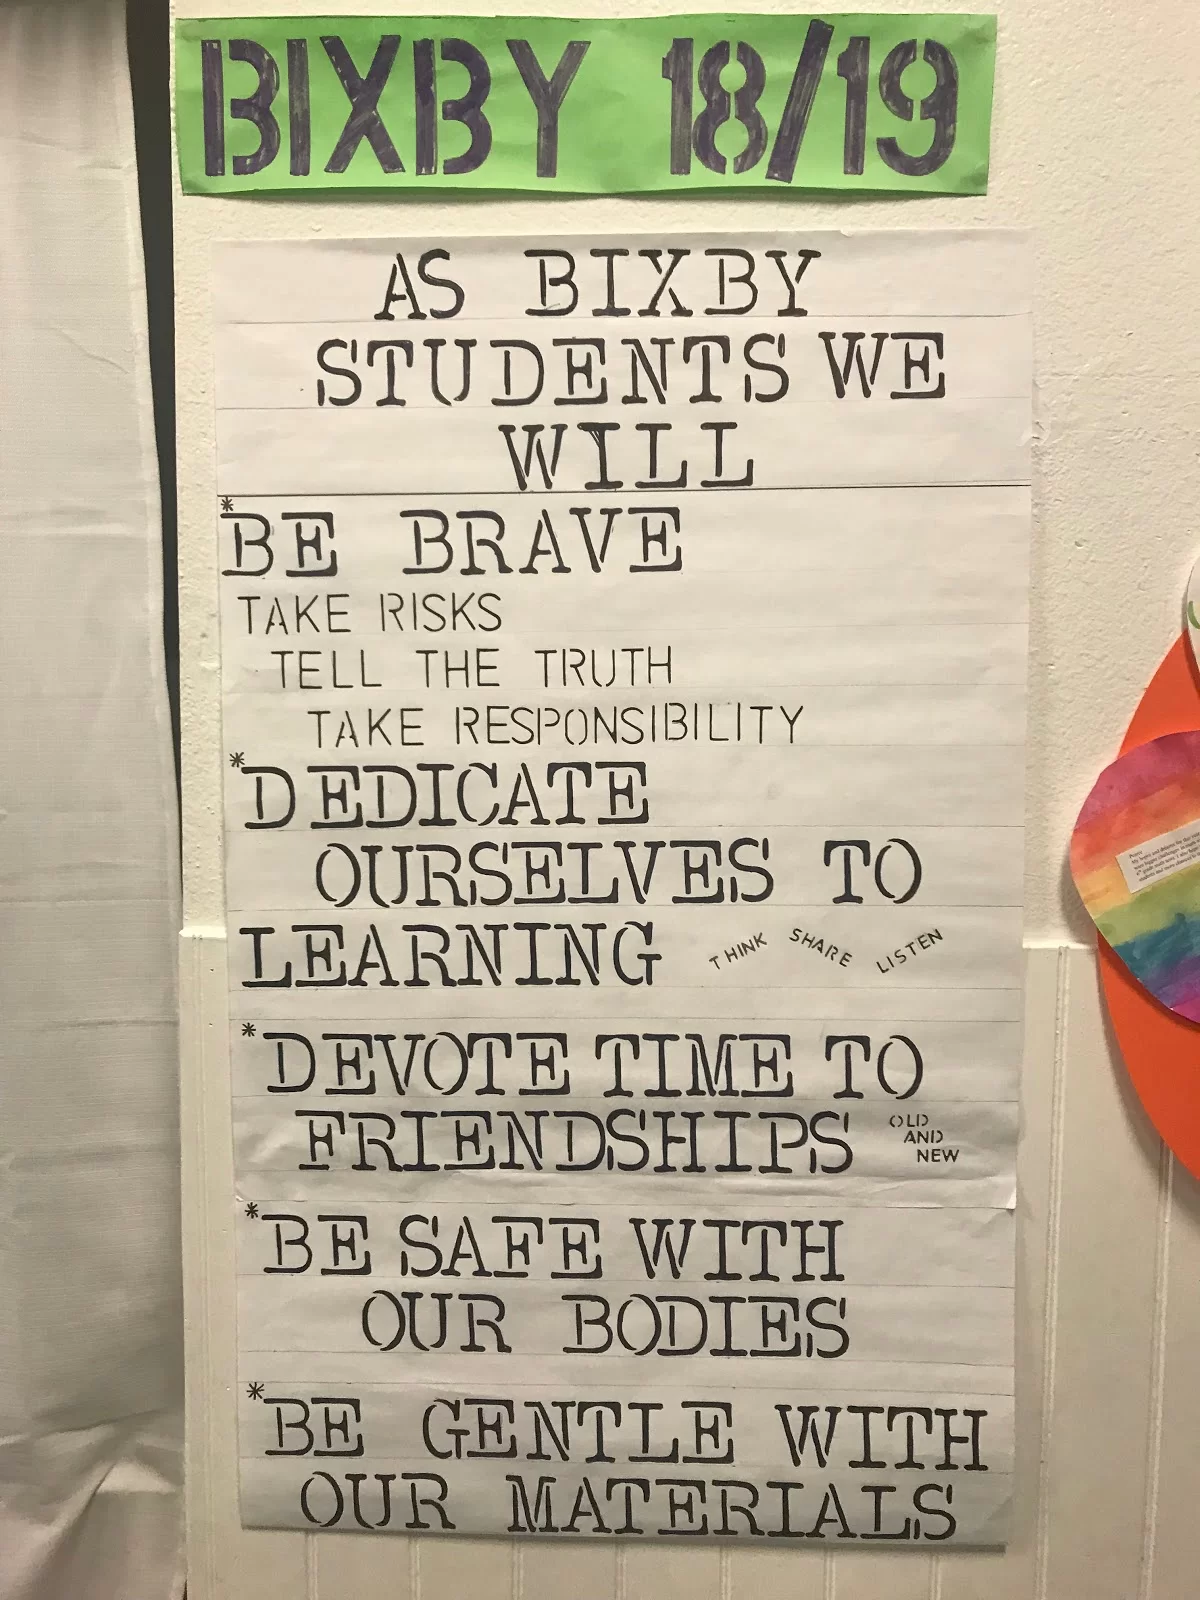 BIXBY 18/19
AS BIXBY
STUDENTS WE
WILL
*BE BRAVE
TAKE RISKS
TELL THE TRUTH
TAKE RESPONSIBILITY
*DEDICATE
OURSELVES TO
LEARNING THINK SHARE LISTEN
*DEVOTE TIME TO
FRIENDSHIPS OLD
AND
NEW
*BE SAFE WITH
OUR BODIES
*BE GENTLE WITH
OUR MATERIALS